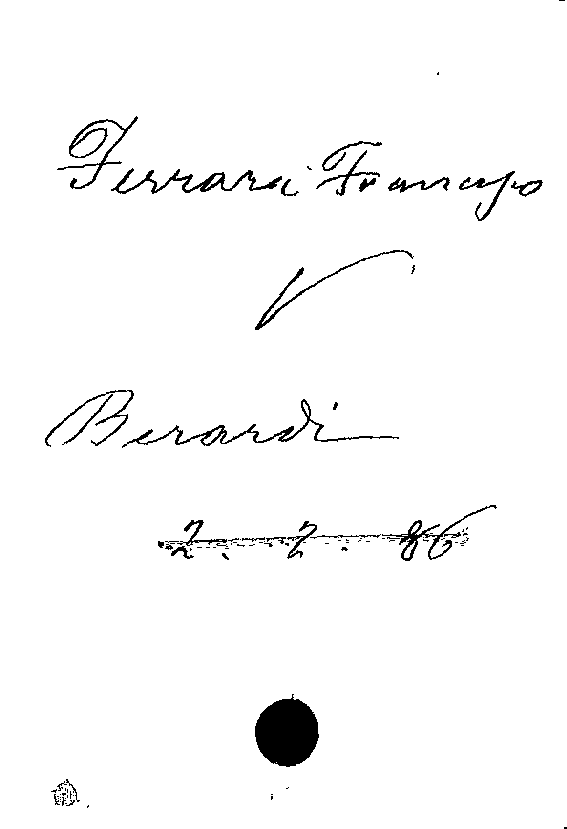 Ferrari Francesco
V
Berardi
2. 2. 86